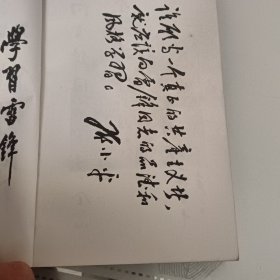 谁愿当一个真正的共产主义者，
就应该向雷锋同志的品德和
风格学习。
邓小平
学習雷锋